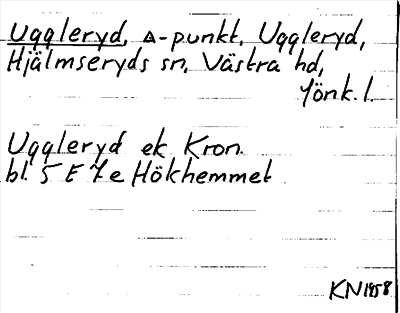 Uggleryd, △-punkt, Uggleryd,
Hjälmseryds sn, Västra hd,
Jönk. l.
Uggleryd ek Kron.
bl. 5 E 7 e Hökhemmet
KN 1958